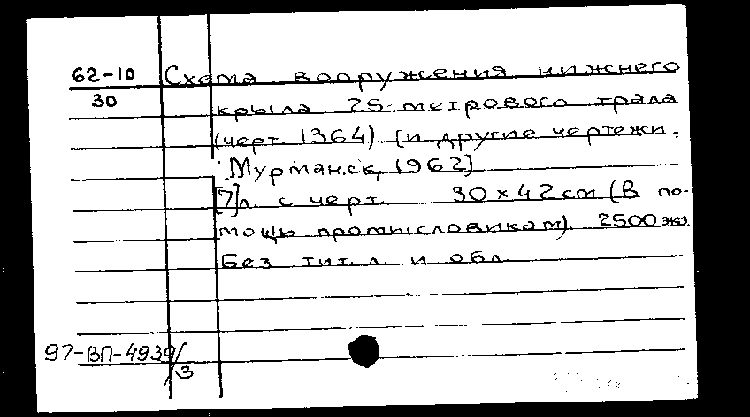 62-10 Схема вооружения нижнего
30
крыла 25-метрового трала
(черт. 1364) [и другие чертежи.
Мурманск, 1962]
[7]л. с черт. 30×42 см (В по-
мощь промысловикам). 2500 экз.
Без тит. л. и обл.
97-ВП-4939/
3